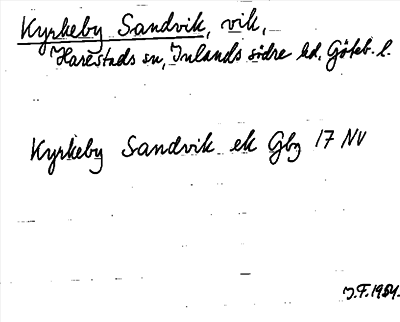 Kyrkeby Sandvik, vik,
Harestads sn, Inlands södre hd, Göteb. l.
Kyrkeby Sandvik ek Gbg 17 NV
J.F. 1954.